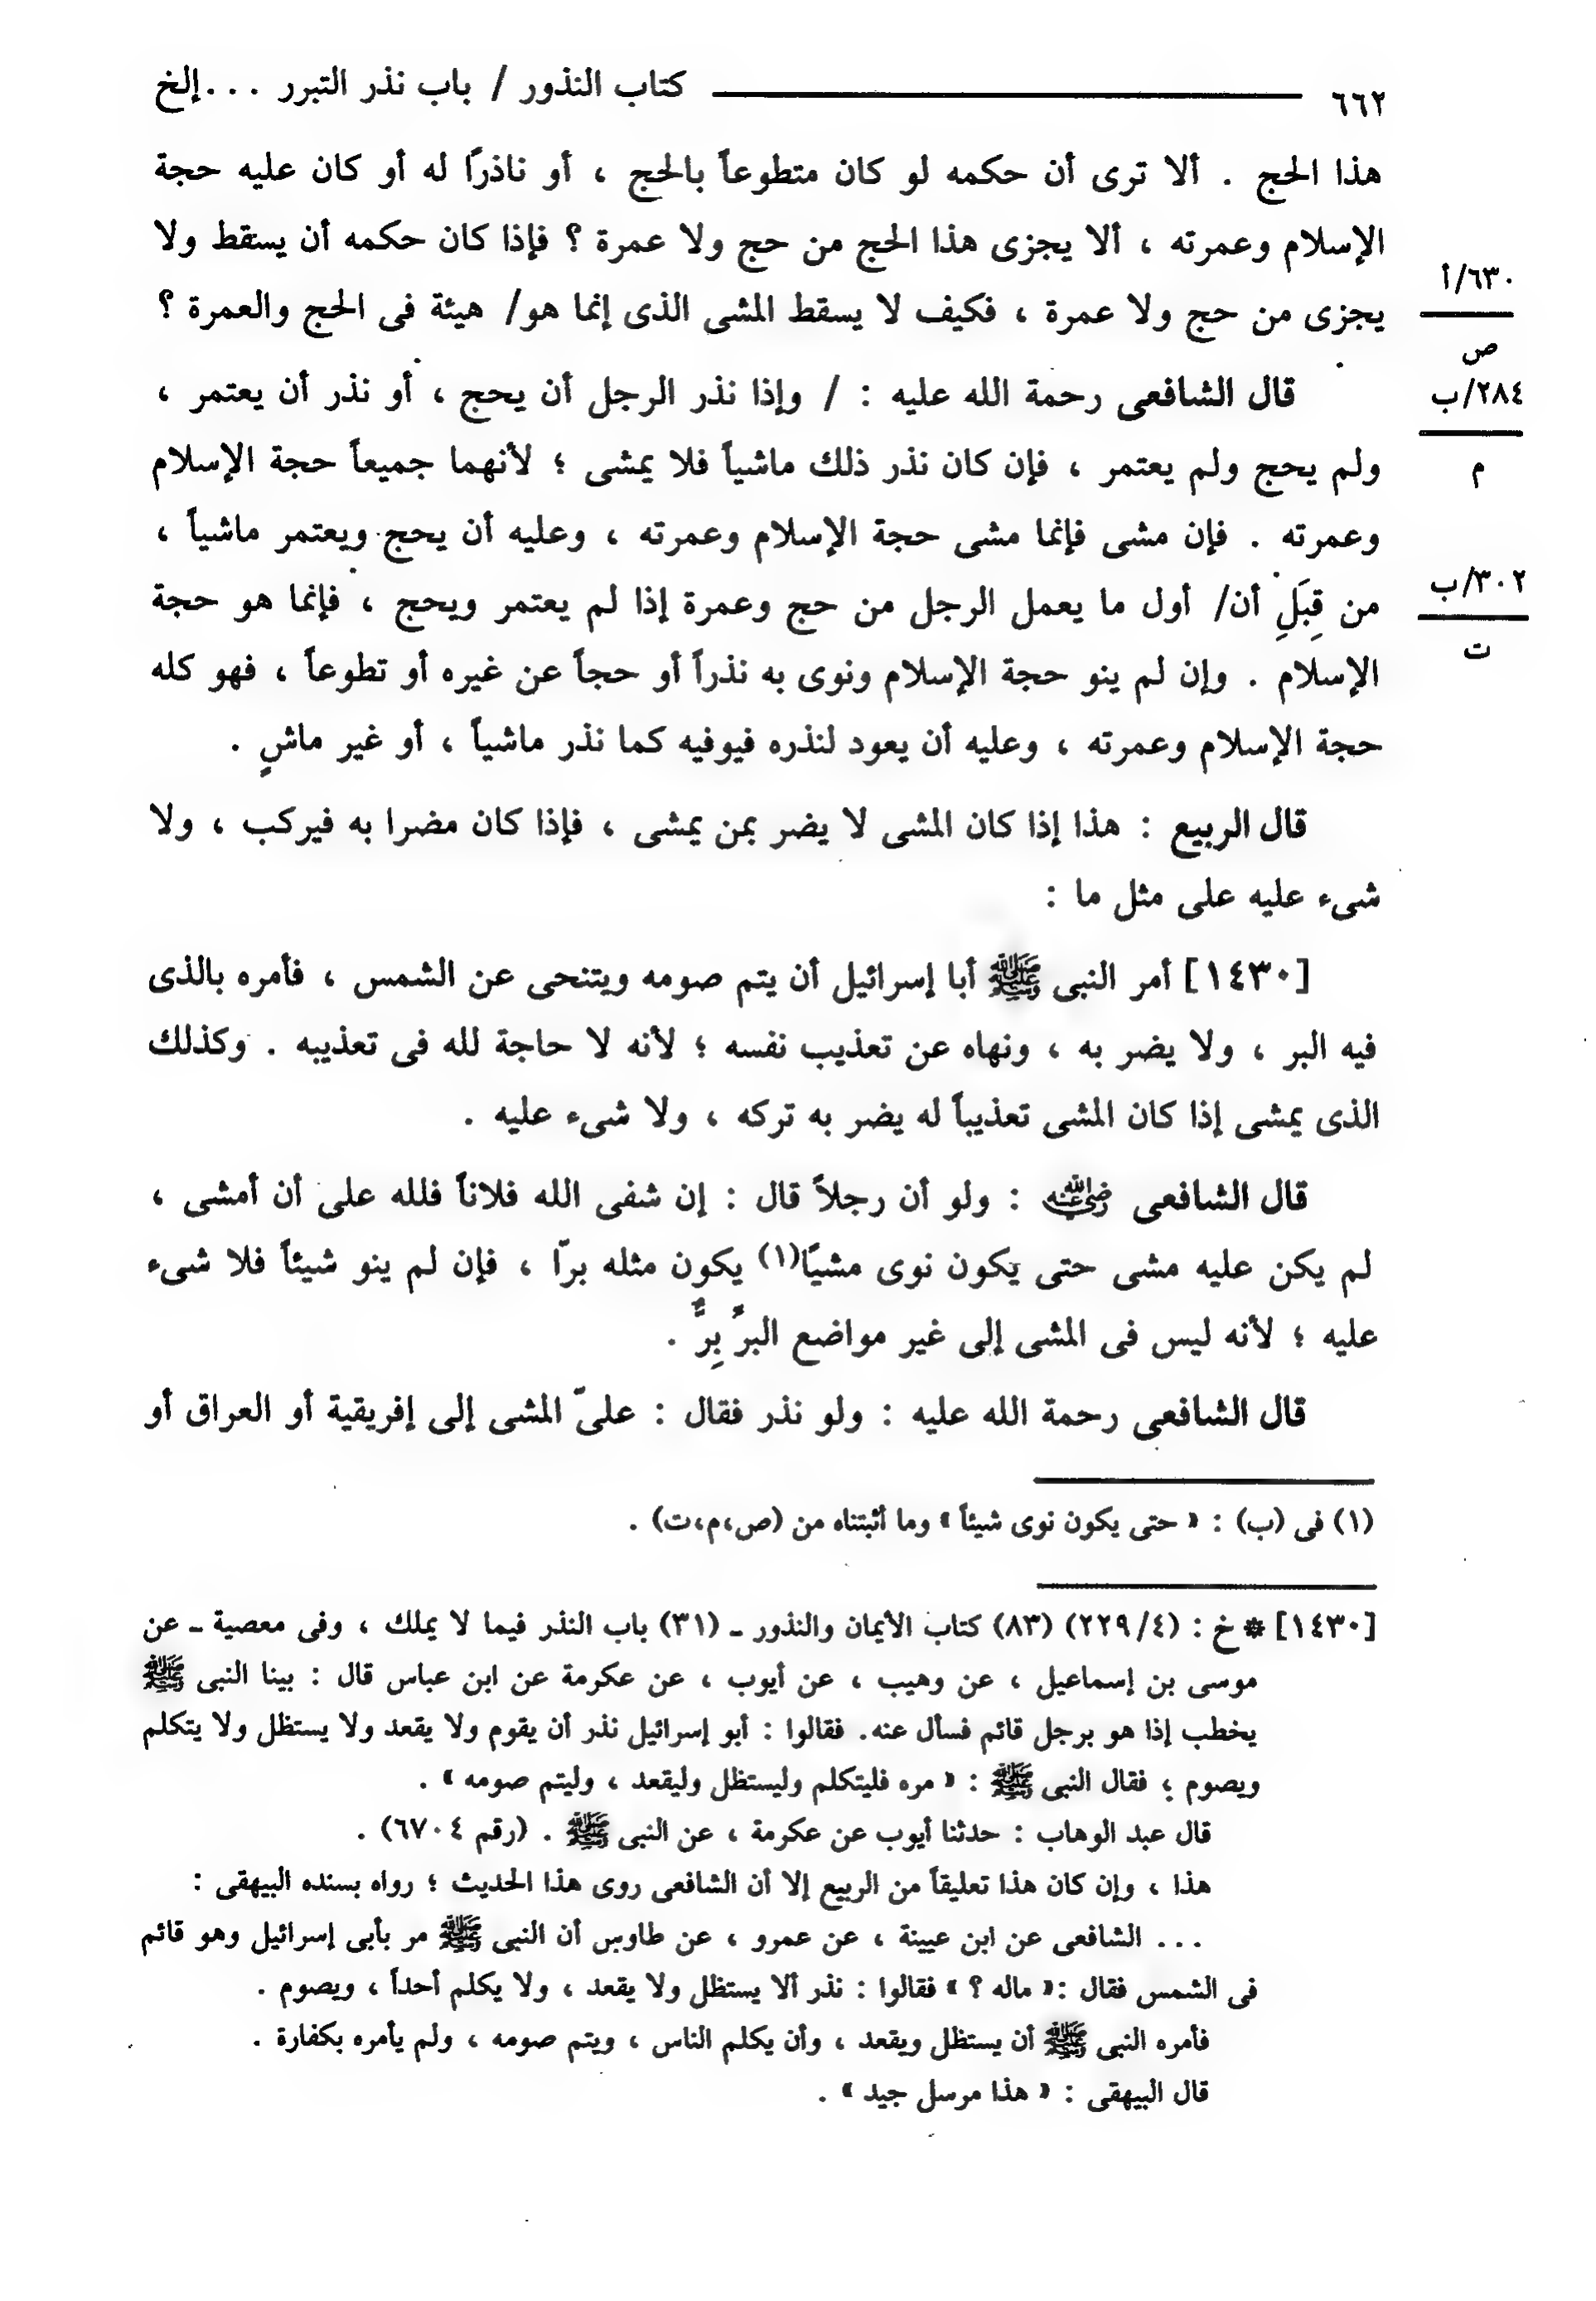 ٦٦٢ كتاب النذور / باب نذر التبرر ...إلخ
هذا الحج . ألا ترى أن حكمه لو كان متطوعاً بالحج ، أو ناذرًا له أو كان عليه حجة
الإسلام وعمرته ، ألا يجزى هذا الحج من حج ولا عمرة ؟ فإذا كان حكمه أن يسقط ولا
٦٣٠/أ
يجزى من حج ولا عمرة ، فكيف لا يسقط المشى الذى إنما هو/ هيئة فى الحج والعمرة ؟
ص
قال الشافعى رحمة الله عليه : / وإذا نذر الرجل أن يحج ، أو نذر أن يعتمر ،
٢٨٤/ب
ولم يحج ولم يعتمر ، فإن كان نذر ذلك ماشياً فلا يمشى ؛ لأنهما جميعاً حجة الإسلام
م
وعمرته . فإن مشى فإنما مشى حجة الإسلام وعمرته ، وعليه أن يحج ويعتمر ماشياً ،
٣٠٢/ب
من قِبَلِ أن/ أول ما يعمل الرجل من حج وعمرة إذا لم يعتمر ويحج ، فإنما هو حجة
ت
الإسلام . وإن لم ينو حجة الإسلام ونوى به نذراً أو حجاً عن غيره أو تطوعاً ، فهو كله
حجة الإسلام وعمرته ، وعليه أن يعود لنذره فيوفيه كما نذر ماشياً ، أو غير ماشٍ .
قال الربيع : هذا إذا كان المشى لا يضر بمن يمشى ، فإذا كان مضرا به فيركب ، ولا
شىء عليه على مثل ما :
[١٤٣٠] أمر النبى ﷺ أبا إسرائيل أن يتم صومه ويتنحى عن الشمس ، فأمره بالذى
فيه البر ، ولا يضر به ، ونهاه عن تعذيب نفسه ؛ لأنه لا حاجة لله فى تعذيبه . وكذلك
الذى يمشى إذا كان المشى تعذيباً له يضر به تركه ، ولا شىء عليه .
قال الشافعى رضي الله عنه : ولو أن رجلاً قال : إن شفى الله فلاناً فلله على أن أمشى ،
لم يكن عليه مشى حتى يكون نوى مشيًا(١) يكون مثله برّا ، فإن لم ينو شيئاً فلا شىء
عليه ؛ لأنه ليس فى المشى إلى غير مواضع البرِّ بِرٌّ .
قال الشافعى رحمة الله عليه : ولو نذر فقال : علىّ المشى إلى إفريقية أو العراق أو
(١) فى (ب) : « حتى يكون نوى شيئاً » وما أثبتناه من (ص،م،ت) .
[١٤٣٠] * خ : (٤/ ٢٢٩) (٨٣) كتاب الأيمان والنذور ـ (٣١) باب النذر فيما لا يملك ، وفى معصية ـ عن
موسى بن إسماعيل ، عن وهيب ، عن أيوب ، عن عكرمة عن ابن عباس قال : بينا النبى ﷺ
يخطب إذا هو برجل قائم فسأل عنه. فقالوا : أبو إسرائيل نذر أن يقوم ولا يقعد ولا يستظل ولا يتكلم
ويصوم ؛ فقال النبى ﷺ : « مره فليتكلم وليستظل وليقعد ، وليتم صومه » .
قال عبد الوهاب : حدثنا أيوب عن عكرمة ، عن النبى ﷺ . (رقم ٦٧٠٤) .
هذا ، وإن كان هذا تعليقاً من الربيع إلا أن الشافعى روى هذا الحديث ؛ رواه بسنده البيهقى :
... الشافعى عن ابن عيينة ، عن عمرو ، عن طاوس أن النبى ﷺ مر بأبى إسرائيل وهو قائم
فى الشمس فقال :« ماله ؟ » فقالوا : نذر ألا يستظل ولا يقعد ، ولا يكلم أحداً ، ويصوم .
فأمره النبى ﷺ أن يستظل ويقعد ، وأن يكلم الناس ، ويتم صومه ، ولم يأمره بكفارة .
قال البيهقى : « هذا مرسل جيد » .